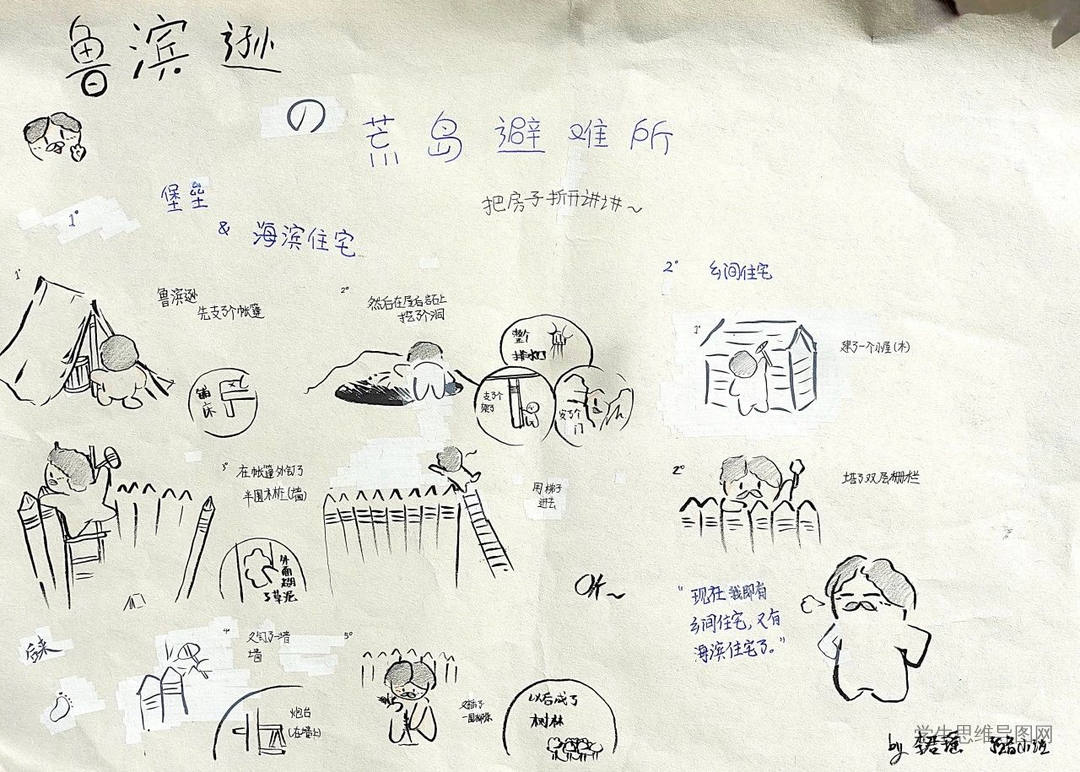 鲁滨逊
の
荒岛避难所
把房子拆开讲讲~
1°
堡垒
& 海滨住宅
1°
鲁滨逊
先支了个帐篷
铺床
2°
然后在屋后岩石上
挖了个洞
整个
排水口
支了个
架子
安了个
门
3°
在帐篷外钉了
半圆木桩(墙)
外面糊
了草泥
用梯子
进去
后来
4°
又钉了一墙
墙
炮台
(在墙上)
5°
以后成了
树林
2° 乡间住宅
1°
建了一个小屋(木)
2°
搭了双层栅栏
OK~
"现在我即有
乡间住宅,又有
海滨住宅了。"
by
学生思维导图网